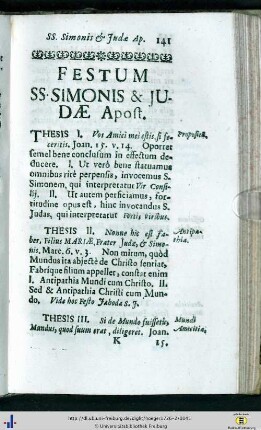 SS. Simonis & Judæ Ap. 141
FESTUM
SS. SIMONIS & JU-
DÆ Apost.
THESIS I. Vos Amici mei estis, si fe-
ceritis. Joan. 15. v. 14. Oportet
semel bene conclusum in effectum de-
ducere. I. Ut verò bene statuamus
omnibus ritè perpensis, invocemus S.
Simonem, qui interpretatur Vir Consi-
lij. II. Ut autem perficiamus, for-
titudine opus est, hinc invocandus S.
Judas, qui interpretatur Fortis viribus.
Propositū.
THESIS II. Nonne hic est fa-
ber, Filius MARIÆ, Frater Judæ, & Simo-
nis. Marc. 6. v. 3. Non mirum, quòd
Mundus ita abjectè de Christo sentiat,
Fabrique filium appellet, constat enim
I. Antipathia Mundi cum Christo. II.
Sed & Antipathia Christi cum Mun-
do. Vide hoc Festo Jaboda S. J.
Antipa-
thia.
THESIS III. Si de Mundo fuissetis,
Mundus, quod suum erat, diligeret. Joan.
Mundi
Amicitia.
K 15.
© Universitätsbibliothek Freiburg